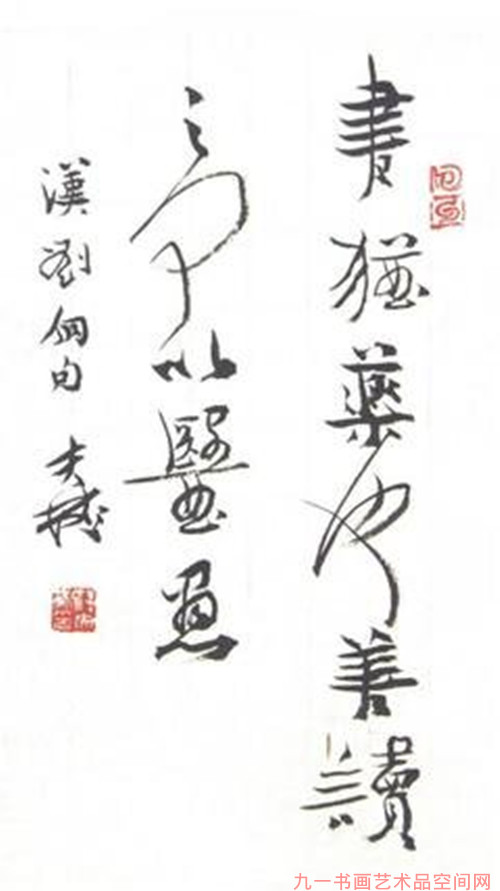 書猶藥也善讀
之可以醫愚
漢劉向句
九一书画艺术品空间网